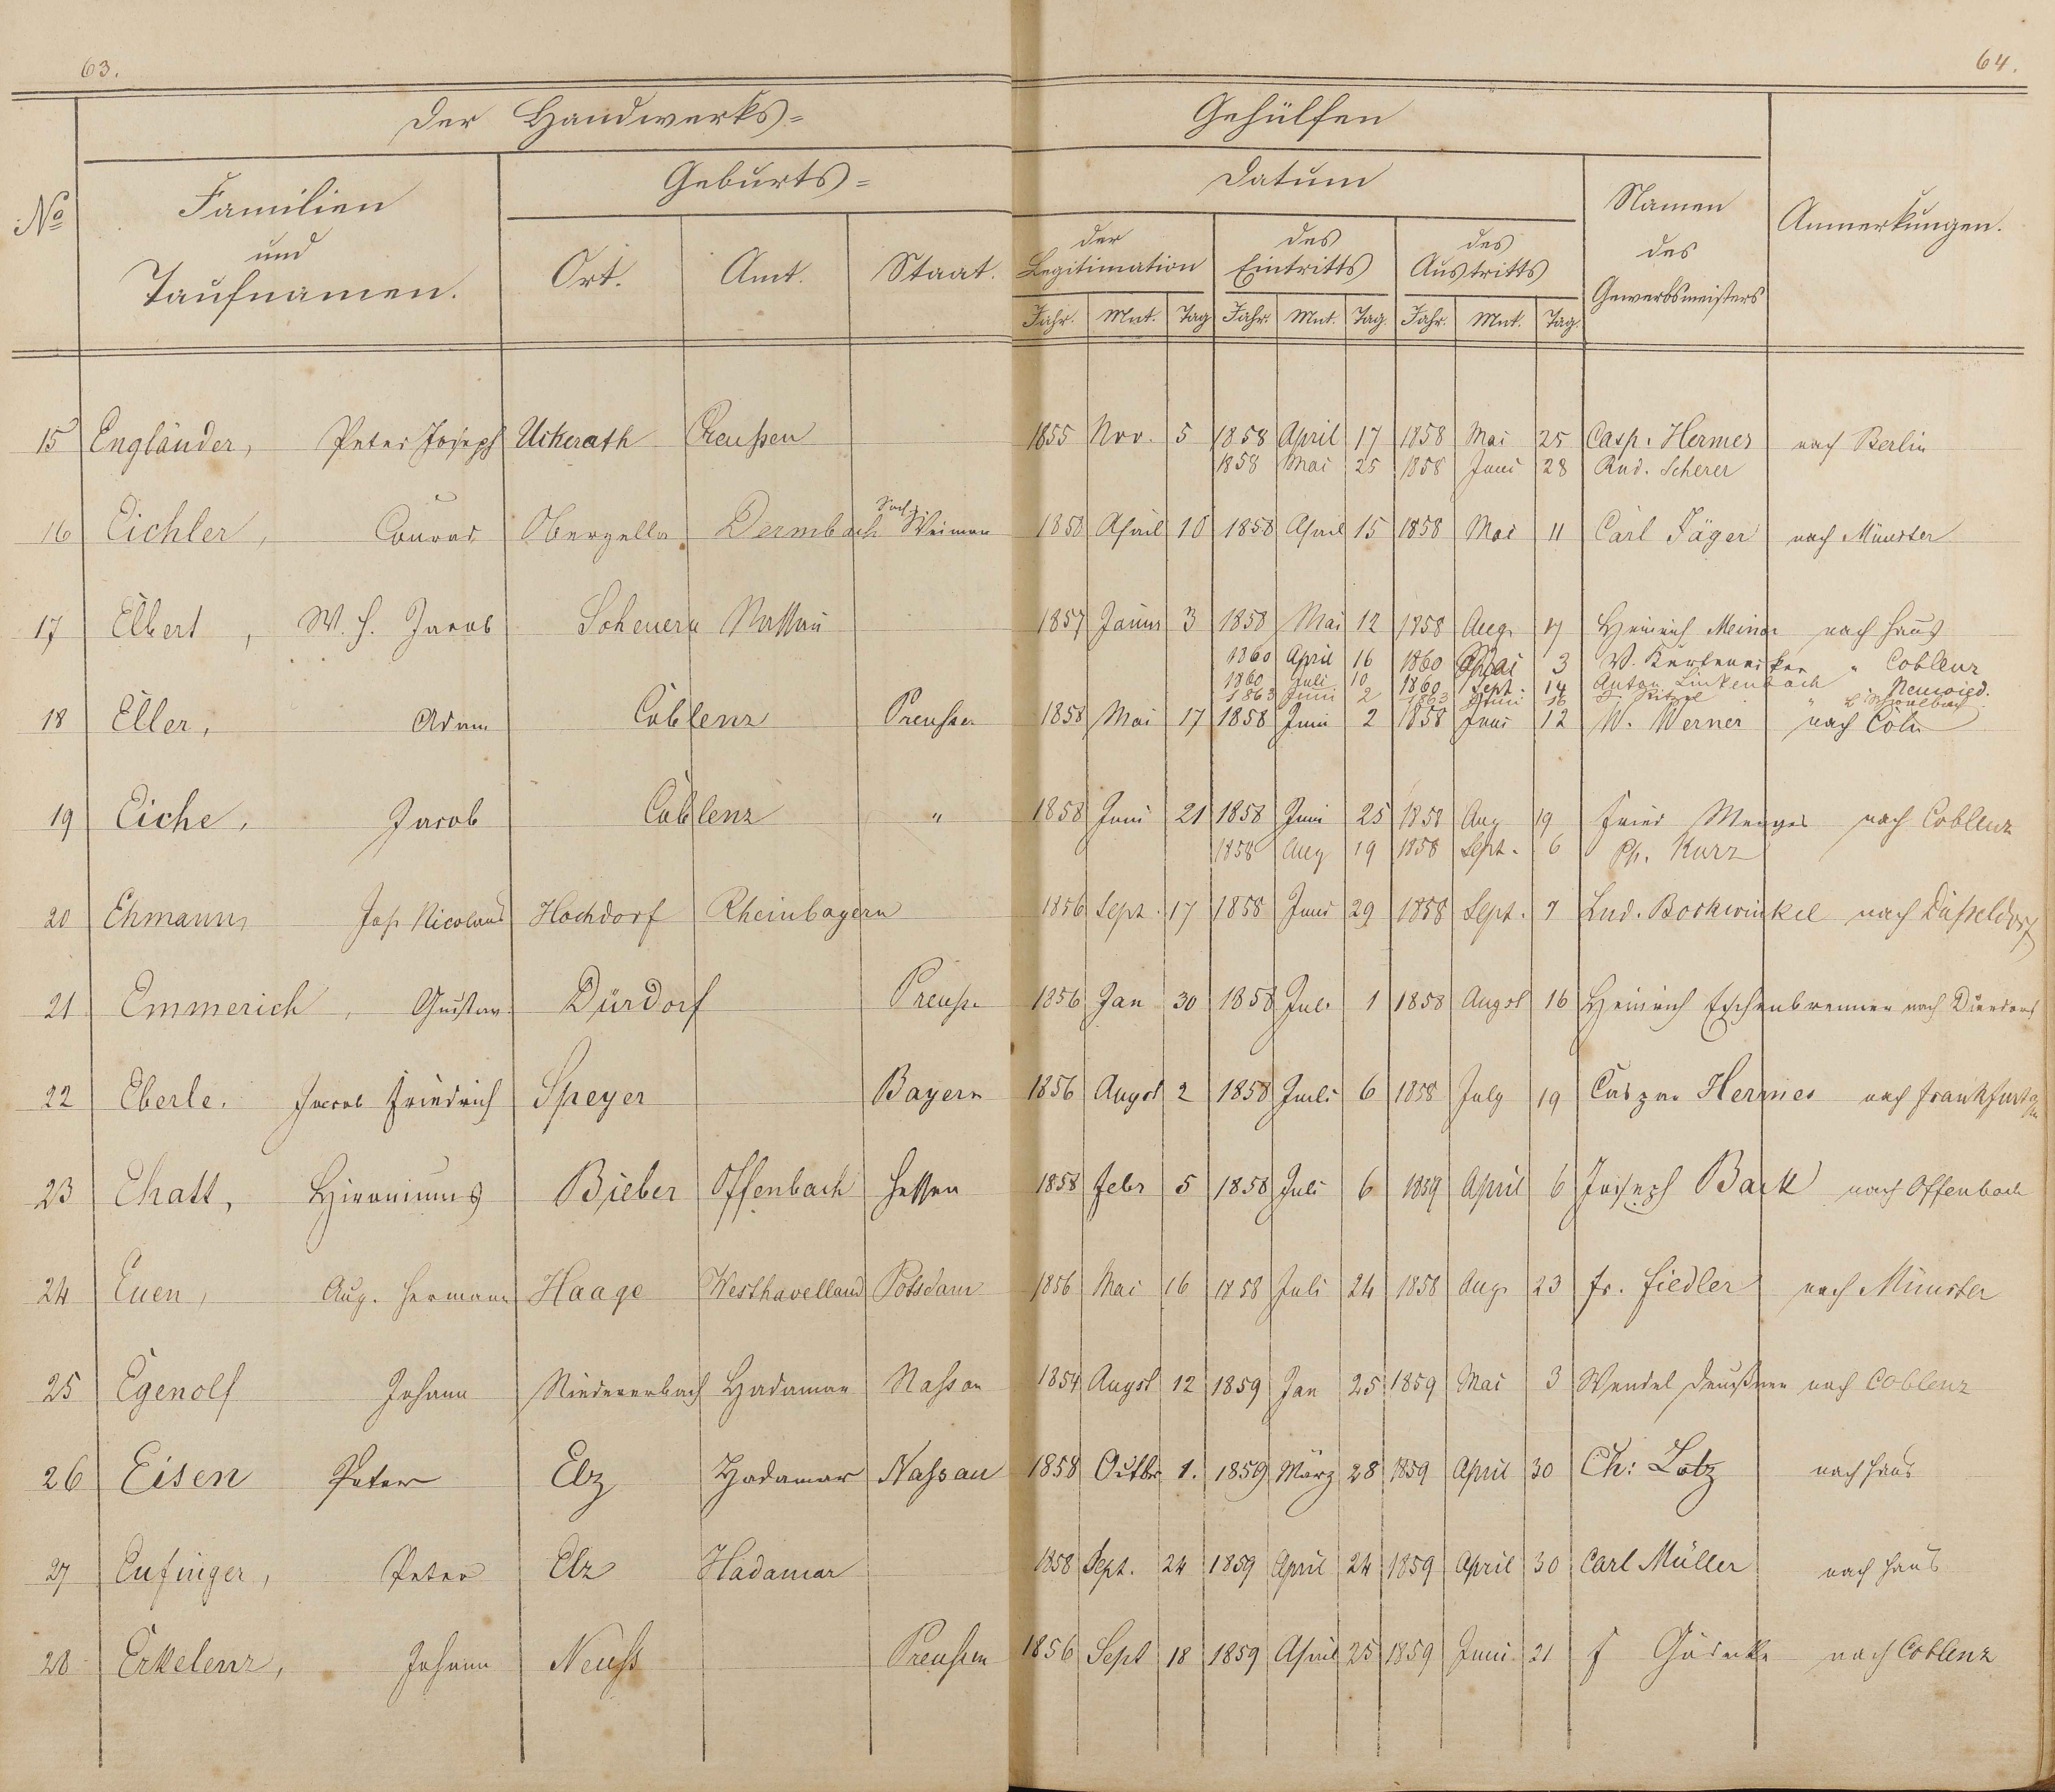 63.
64.
Der Handwerks=
Gehülfen
No
Familien
und
Taufnamen.
Geburts=
Ort.
Amt.
Staat.
Datum
der
Legitimation
des
Eintritts
des
Austritts
Jahr. Mnt. Tag Jahr. Mnt. Tag. Jahr. Mnt. Tag.
Namen
des
Gewerbsmeisters
Anmerkungen.
15 Engländer, Peter Joseph Uckerath Preußen 1855 Nov. 5 1858 April 17 1858 Mai 25 Casp. Hermes nach Berlin
1858 Mai 25 1858 Juni 28 Rud. Scherer
16 Eichler, Conrad Oberzella Dermbach Sachs. Weimar 1858 April 10 1858 April 15 1858 Mai 11 Carl Jäger nach Münster
17 Elbert, W. H. Jacob Scheuern Nassau 1857 Januar 3 1858 Mai 12 1858 Aug. 17 Heinrich nach Haus
1860 April 16 1860 Mai 3 " Coblenz
1860 Juli 10 1860 Sept. 14 Anton Linkenbach " Neuwied.
1863 Juni 2 1863 Juni 16 " L. Schwalbach
18 Eller, Adam Coblenz Preußen 1858 Mai 17 1858 Juni 2 1858 Juni 12 W. Werner nach Cöln
19 Eiche, Jacob Coblenz " 1858 Juni 21 1858 Juni 25 1858 Aug 19 Fried Menges nach Coblenz
1858 Aug 19 1858 Sept. 6 Ph. Kurz
20 Ehmann, Joh Nicolaus Hochdorf Rheinbayern 1856 Sept. 17 1858 Juni 29 1858 Sept. 7 Lud. Bockwinkel nach Düßeldorf
21 Emmerich, Gustav. Dürdorf Preuße 1856 Jan 30 1858 Juli 1 1858 Augst 16 Heinrich Eschenbrenner nach Dierdorf
22 Eberle. Jacob Friedrich Speyer Bayern 1856 Augst 2 1858 Juli 6 1858 July 19 Caspar Hermes nach Frankfurt a/m
23 Ehatt, Hironimus Bieber Offenbach Hessen 1858 Febr 5 1858 Juli 6 1859 April 6 Joseph Back nach Offenbach
24 Euen, Aug. Hermann Haage Westhavelland Potsdam 1856 Mai 16 1858 Juli 24 1858 Aug. 23 Fr. Fiedler nach Münster
25 Egenolf Johann Niedererbach Hadamar Naßau 1854 Augst 12 1859 Jan 25 1859 Mai 3 Wendel nach Coblenz
26 Eisen Peter Elz Hadamar Naßau 1858 Octbr 1. 1859 März 28 1859 April 30 Ch: Lotz nach Haus
27 Eufinger, Peter Elz Hadamar 1858 Sept. 24 1859 April 24 1859 April 30 Carl Müller nach Haus
28 Erkelenz, Johann Neuß Preußen 1856 Sept 18 1859 April 25 1859 Juni 21 F nach Coblenz